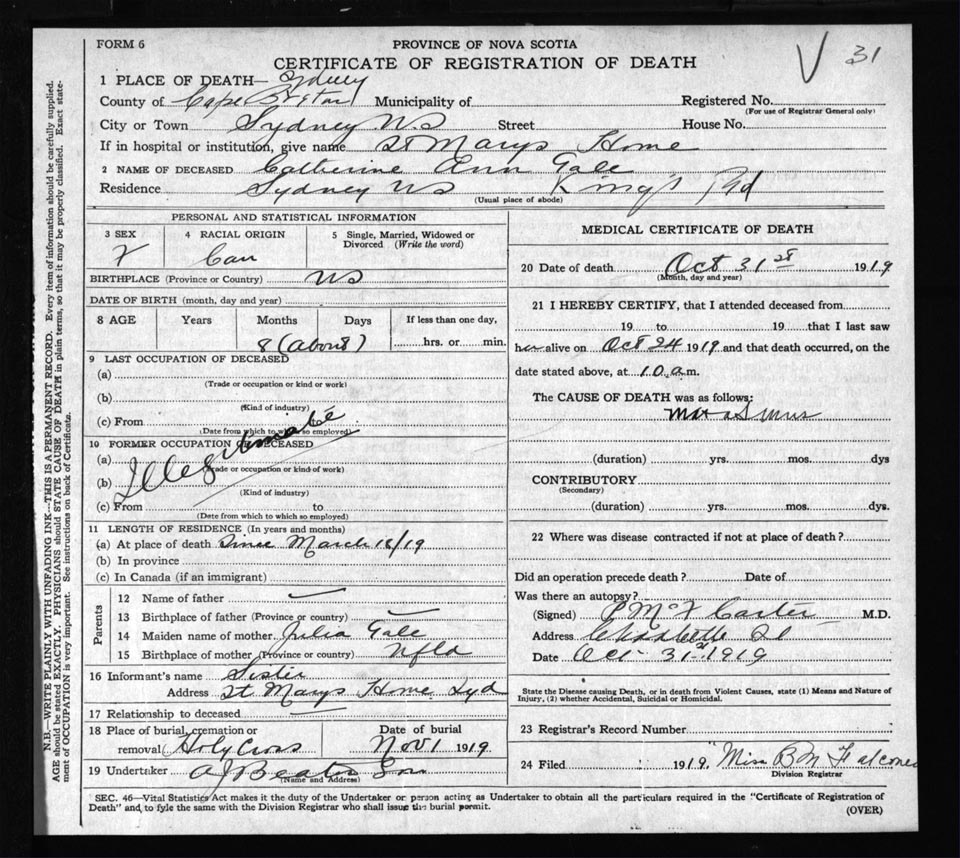 FORM 6
PROVINCE OF NOVA SCOTIA
CERTIFICATE OF REGISTRATION OF DEATH
V 31
1 PLACE OF DEATH— Sydney
County of Cape Breton Municipality of Registered No.
(For use of Registrar General only)
City or Town Sydney N.S Street House No.
If in hospital or institution, give name St Marys Home
2 NAME OF DECEASED Catherine Ann Gale
Residence Sydney NS King's Rd
(Usual place of abode)
PERSONAL AND STATISTICAL INFORMATION
3 SEX 4 RACIAL ORIGIN 5 Single, Married, Widowed or Divorced (Write the word)
F Can
BIRTHPLACE (Province or Country) NS
DATE OF BIRTH (month, day and year)
8 AGE Years Months Days If less than one day,
8 (about) hrs. or min.
9 LAST OCCUPATION OF DECEASED
(a)
(Trade or occupation or kind or work)
(b)
(Kind of industry)
(c) From
(Date from which to which so employed)
10 FORMER OCCUPATION OF DECEASED
Illegitimate
(a)
(Trade or occupation or kind of work)
(b)
(Kind of industry)
(c) From to
(Date from which to which so employed)
11 LENGTH OF RESIDENCE (In years and months)
(a) At place of death Since March 18/19
(b) In province
(c) In Canada (if an immigrant)
Parents
12 Name of father —
13 Birthplace of father (Province or country) —
14 Maiden name of mother Julia Gale
15 Birthplace of mother (Province or country) Nfld
16 Informant's name Sister
Address St Marys Home Syd
17 Relationship to deceased —
18 Place of burial, cremation or removal Holy Cross Date of burial Nov 1 1919
19 Undertaker A J Beaton Son
(Name and Address)
MEDICAL CERTIFICATE OF DEATH
20 Date of death Oct 31st 1919
(Month, day and year)
21 I HEREBY CERTIFY, that I attended deceased from
19 to 19 that I last saw
her alive on Oct 24 1919 and that death occurred, on the
date stated above, at 10 a.m.
The CAUSE OF DEATH was as follows:
Marasmus
(duration) yrs. mos. dys
CONTRIBUTORY
(Secondary)
(duration) yrs. mos. dys.
22 Where was disease contracted if not at place of death?
Did an operation precede death? Date of
Was there an autopsy?
(Signed) Carter M.D.
Address
Date Oct 31st 1919
State the Disease causing Death, or in death from Violent Causes, state (1) Means and Nature of
Injury, (2) whether Accidental, Suicidal or Homicidal.
23 Registrar's Record Number
24 Filed 1919. "Miss B M Falconer
Division Registrar
SEC. 46—Vital Statistics Act makes it the duty of the Undertaker or person acting as Undertaker to obtain all the particulars required in the "Certificate of Registration of
Death" and to fyle the same with the Division Registrar who shall issue the burial permit.
(OVER)
N.B.—WRITE PLAINLY WITH UNFADING INK—THIS IS A PERMANENT RECORD. Every item of information should be carefully supplied.
AGE should be stated EXACTLY. PHYSICIANS should STATE CAUSE OF DEATH in plain terms, so that it may be properly classified. Exact state-
ment of OCCUPATION is very important. See instructions on back of Certificate.